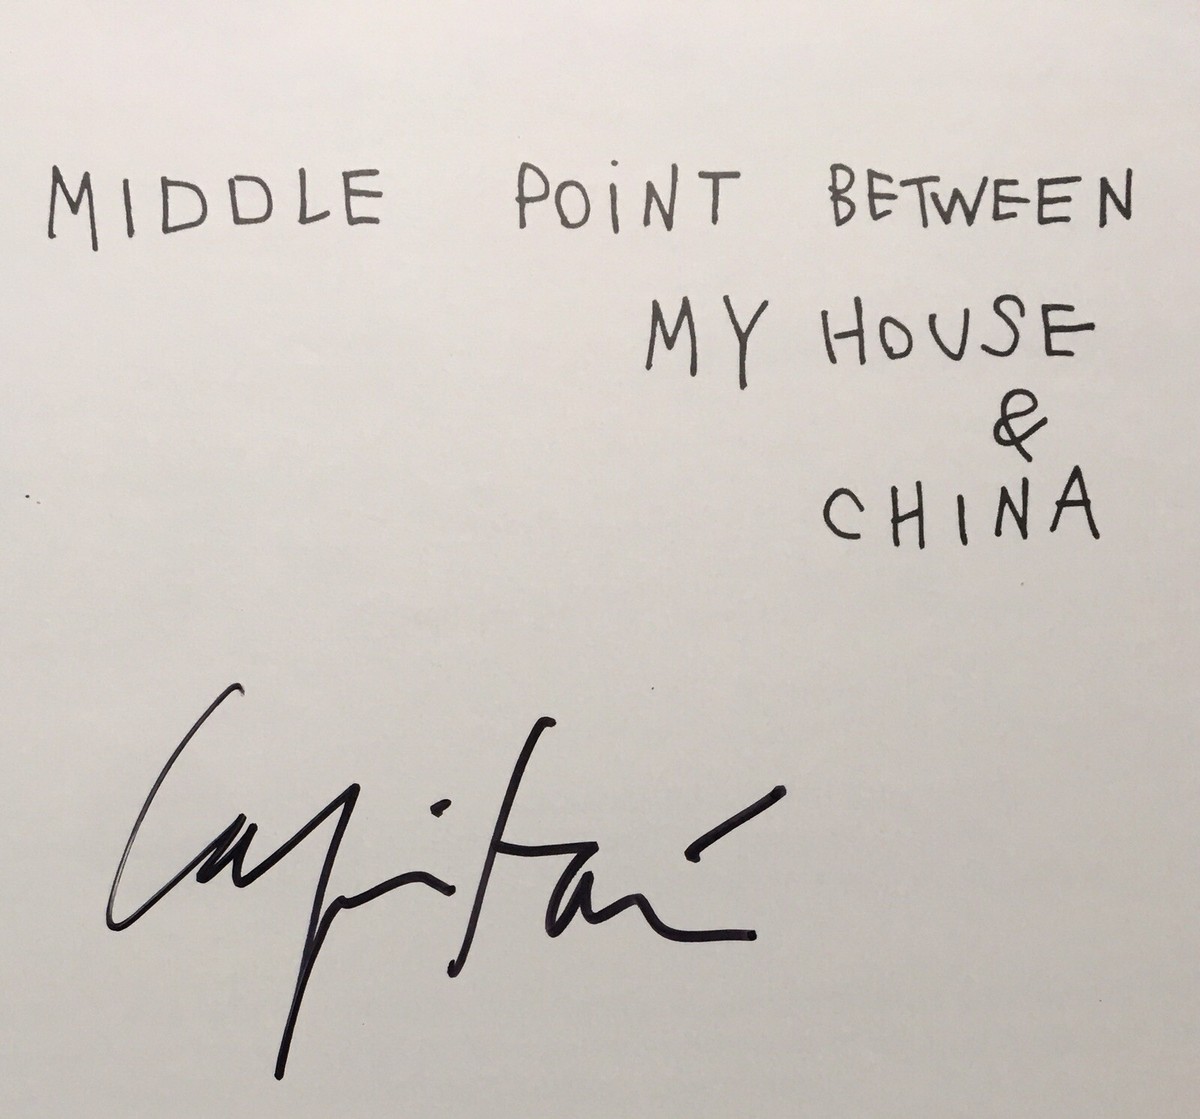 MIDDLE POiNT BETWEEN
MY HOUSE
&
CHINA
Capitán